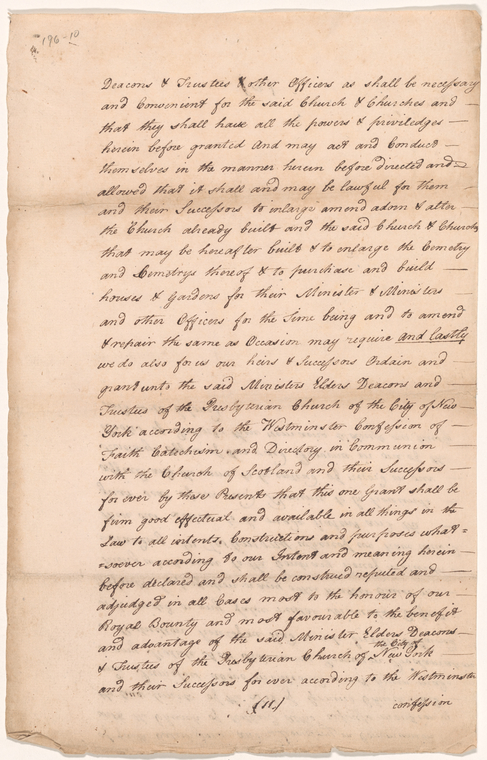 196-10
Deacons & Trustees & other Officers as shall be necessary
and Convenient for the said Church & Churches and —
that they shall have all the powers & priviledges —
herein before granted And may act and Conduct —
themselves in the manner herein before directed and =
allowed that it shall and may be lawful for them —
and their Successors to enlarge amend adorn & alter —
the Church already built and the said Church & Churches
that may be hereafter built & to enlarge the Cemetry
and Cemetrys thereof & to purchase and build —
houses & Gardens for their Minister & Ministers —
and other Officers for the time being and to amend
& repair the same as Occasion may require and lastly
we do also for us our heirs & Successors Ordain and —
grant unto the said Ministers Elders Deacons and —
Trustees of the Presbyterian Church of the City of New
York according to the Westminster Confession of —
Faith Catechism and Directory in Communion —
with the Church of Scotland and their Successors —
for ever by these Presents that this one Grant shall be
firm good effectual and available in all things in the
Law to all intents, Constructions and purposes what =
= soever according to our Intent and meaning herein —
before declared and shall be construed reputed and —
adjudged in all Cases most to the honour of our —
Royal Bounty and most favourable to the benefit
and advantage of the said Minister Elders Deacons —
& Trustees of the Presbyterian Church of the City of New York
and their Successors for ever according to the Westminster
(11) confession